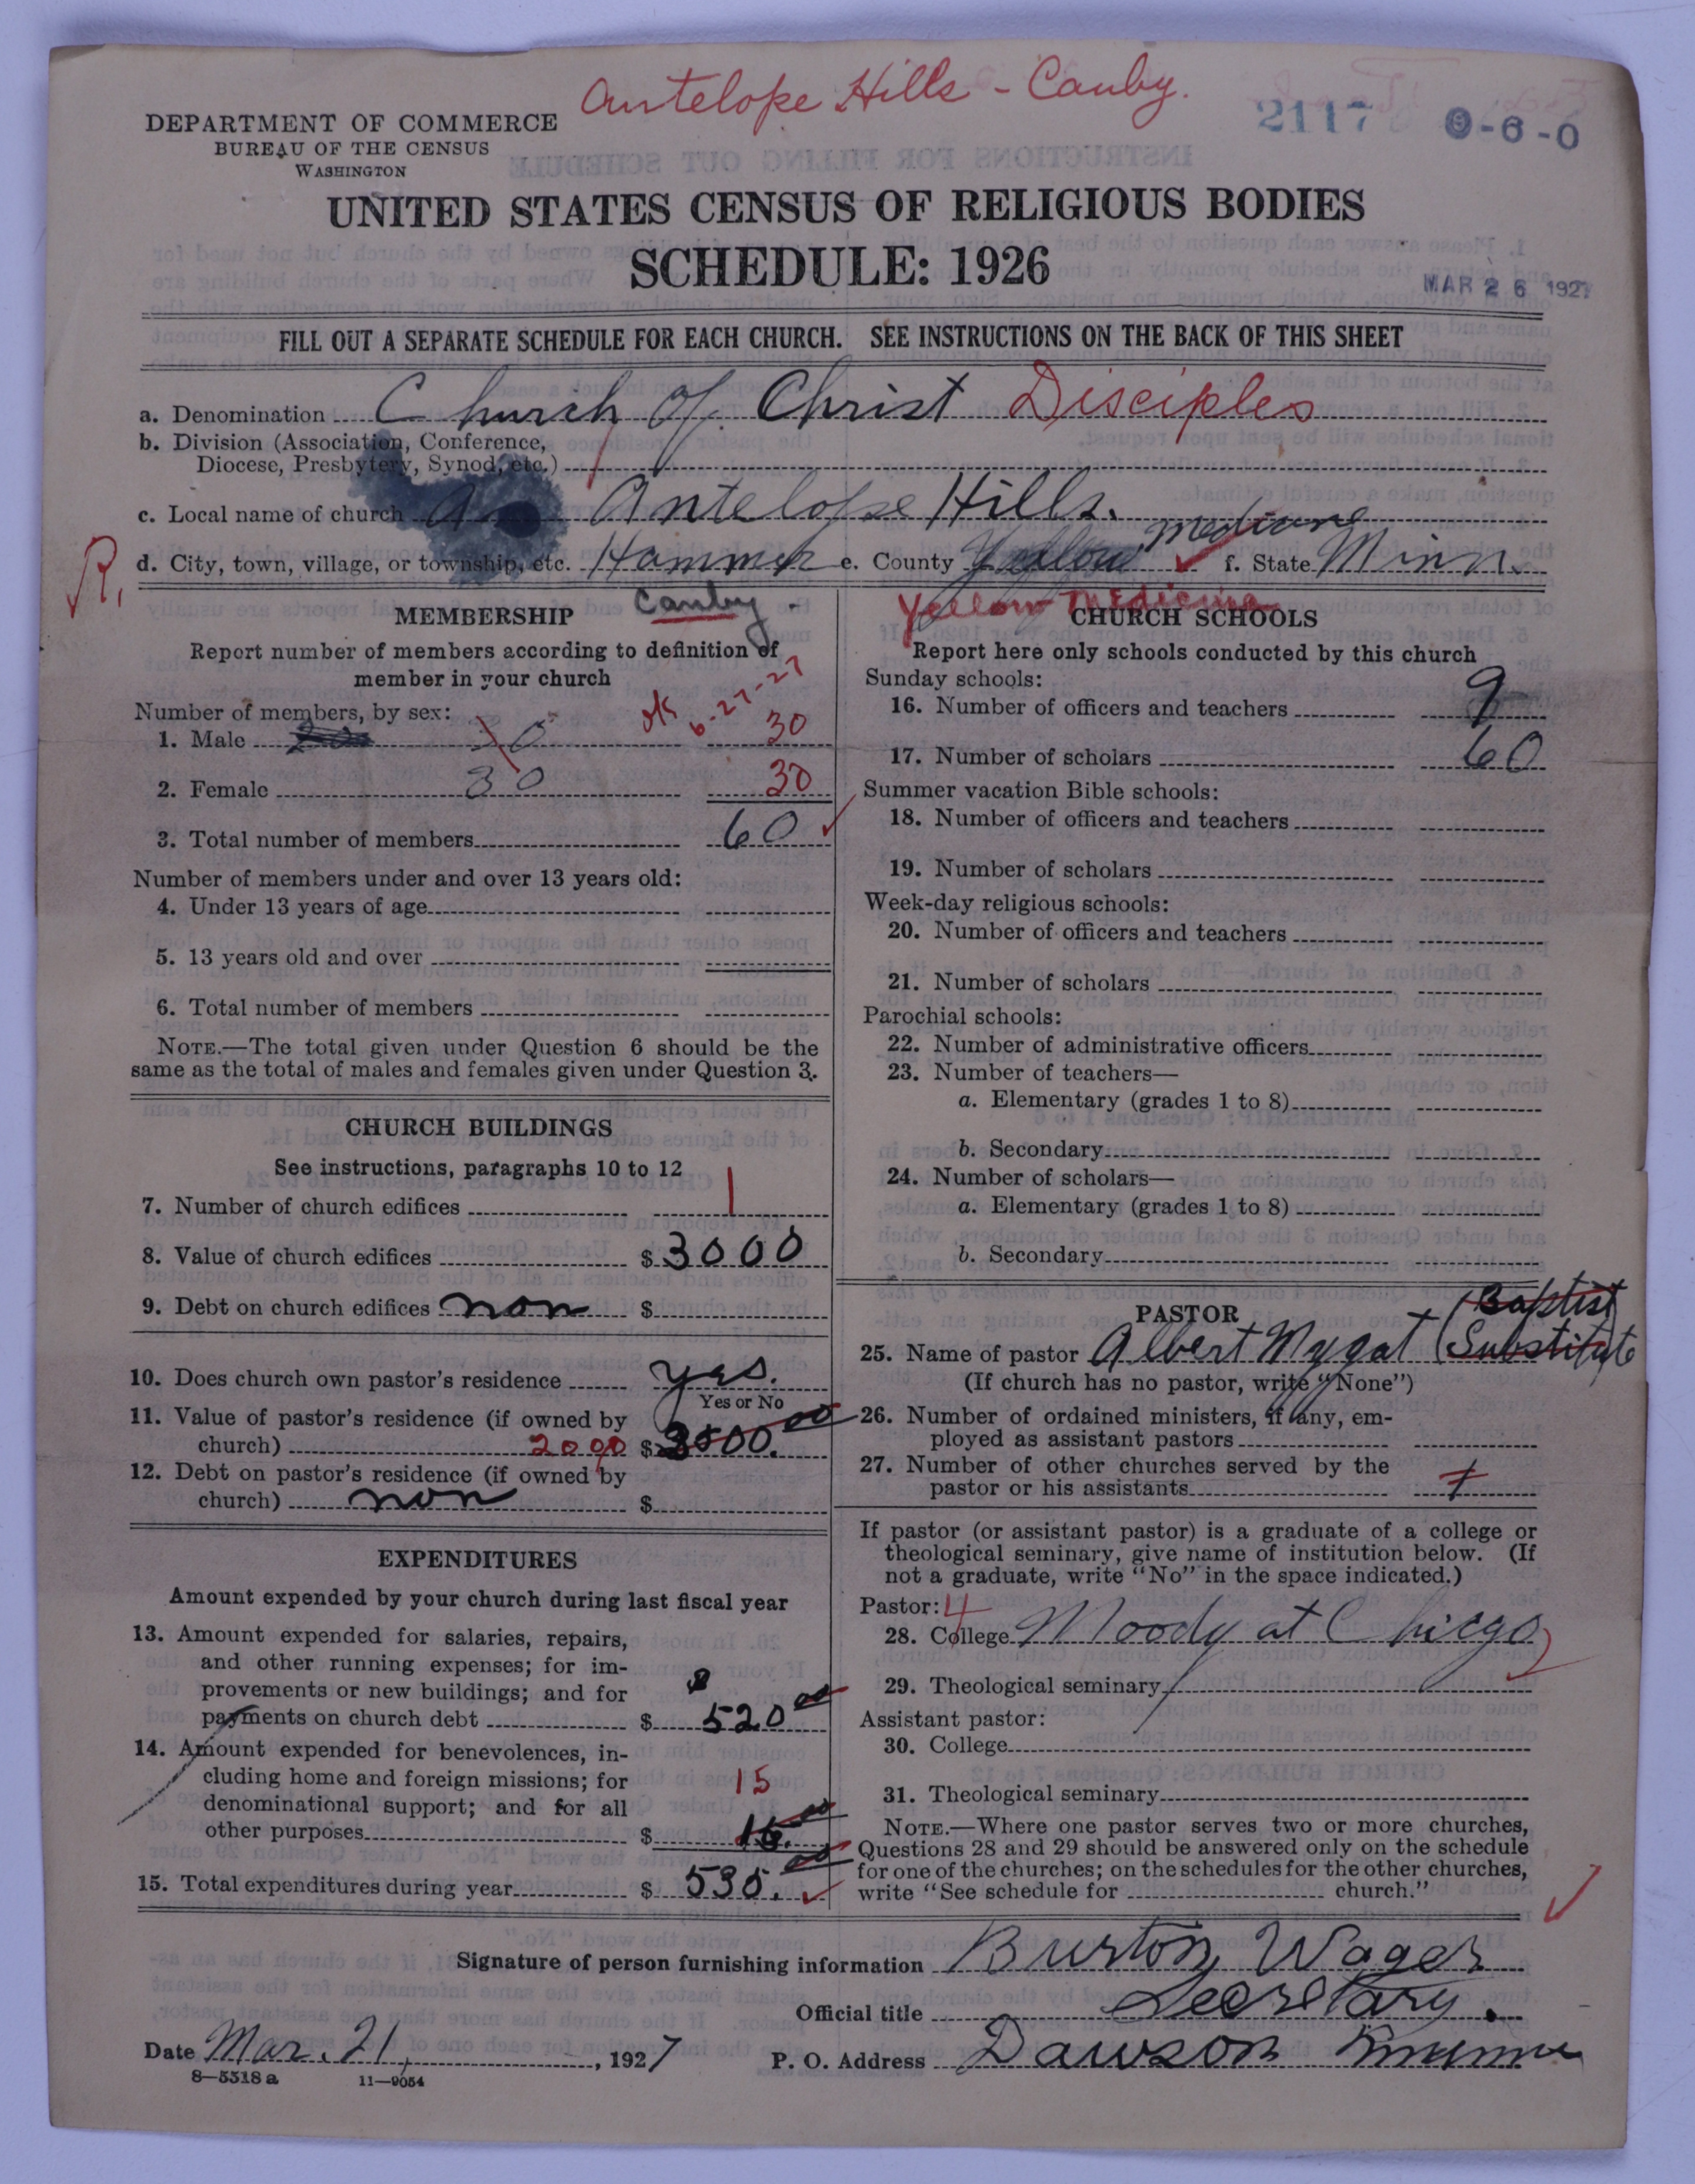 Antelope Hills - Canby.
2117 9-6-0
DEPARTMENT OF COMMERCE
BUREAU OF THE CENSUS
WASHINGTON
UNITED STATES CENSUS OF RELIGIOUS BODIES
SCHEDULE: 1926
MAR 26 1927
FILL OUT A SEPARATE SCHEDULE FOR EACH CHURCH. SEE INSTRUCTIONS ON THE BACK OF THIS SHEET
a. Denomination Church of Christ Disciples
b. Division (Association, Conference,
Diocese, Presbytery, Synod, etc.)
c. Local name of church Antelope Hills.
R, d. City, town, village, or township, etc. Hammer e. County Yellow Medicine f. State Minn.
Canby.
Yellow Medicine
MEMBERSHIP
Report number of members according to definition of
member in your church
Number of members, by sex:
ok 6-27-27
1. Male 30 30
2. Female 30 30
3. Total number of members 60
Number of members under and over 13 years old:
4. Under 13 years of age
5. 13 years old and over
6. Total number of members
NOTE.—The total given under Question 6 should be the
same as the total of males and females given under Question 3.
CHURCH BUILDINGS
See instructions, paragraphs 10 to 12
7. Number of church edifices 1
8. Value of church edifices $3000
9. Debt on church edifices non $
10. Does church own pastor's residence yes.
Yes or No
11. Value of pastor's residence (if owned by
church) 2000 $ 00
12. Debt on pastor's residence (if owned by
church) non $
EXPENDITURES
Amount expended by your church during last fiscal year
13. Amount expended for salaries, repairs,
and other running expenses; for im-
provements or new buildings; and for
payments on church debt $ 520 00
14. Amount expended for benevolences, in-
cluding home and foreign missions; for
denominational support; and for all 15
other purposes $ 15. 00
15. Total expenditures during year $ 535. 00
CHURCH SCHOOLS
Report here only schools conducted by this church
Sunday schools:
16. Number of officers and teachers 9
17. Number of scholars 60
Summer vacation Bible schools:
18. Number of officers and teachers
19. Number of scholars
Week-day religious schools:
20. Number of officers and teachers
21. Number of scholars
Parochial schools:
22. Number of administrative officers
23. Number of teachers—
a. Elementary (grades 1 to 8)
b. Secondary
24. Number of scholars—
a. Elementary (grades 1 to 8)
b. Secondary
PASTOR
(Baptist
25. Name of pastor Albert Mygat (Substitute
(If church has no pastor, write "None")
26. Number of ordained ministers, if any, em-
ployed as assistant pastors
27. Number of other churches served by the
pastor or his assistants 1
If pastor (or assistant pastor) is a graduate of a college or
theological seminary, give name of institution below. (If
not a graduate, write "No" in the space indicated.)
Pastor: 4
28. College Moody at Chicgo
29. Theological seminary
Assistant pastor:
30. College
31. Theological seminary
NOTE.—Where one pastor serves two or more churches,
Questions 28 and 29 should be answered only on the schedule
for one of the churches; on the schedules for the other churches,
write "See schedule for church."
Signature of person furnishing information Burton Wager
Official title Secretary.
Date Mar. 21, 1927 P. O. Address Dawson Minn
8—5518 a 11—9054